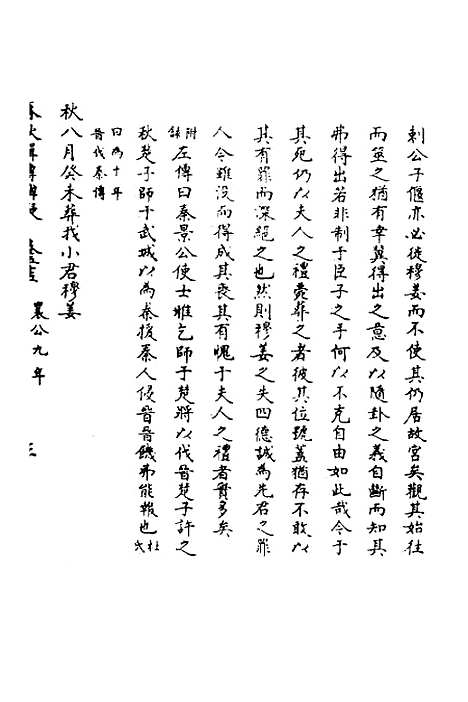 刺公子偃亦必徙穆姜而不使其仍居故宮矣觀其始往
而筮之猶有幸冀得出之意及以隨卦之義自斷而知其
弗得出若非制于臣子之手何以不克自由如此哉今于
其死仍以夫人之禮薨葬之者彼其位號蓋猶存不敢以
其有罪而深絕之也然則穆姜之失四德誠為先君之罪
人今雖沒而得成其喪其有愧于夫人之禮者實多矣
附錄左傳曰秦景公使士雃乞師于楚將以伐晉楚子許之
秋楚子師于武城以為秦援秦人侵晉晉饑弗能報也杜氏
曰為十年晉伐秦傳
秋八月癸未葬我小君穆姜
春秋 襄公九年 三